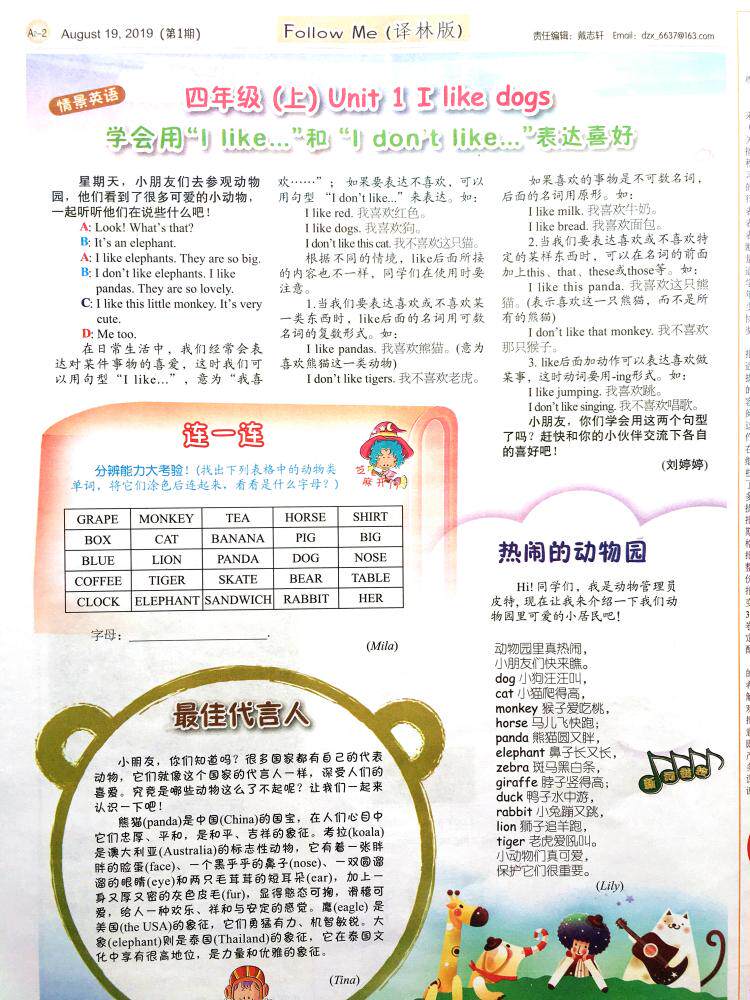 A2-2 August 19, 2019 (第1期)
Follow Me (译林版)
责任编辑：戴志轩 Email：dzx_6637@163.com
情景英语
四年级 (上) Unit 1 I like dogs
学会用“I like...”和 “I don't like...”表达喜好
星期天，小朋友们去参观动物
园，他们看到了很多可爱的小动物，
一起听听他们在说些什么吧！
A: Look! What's that?
B: It's an elephant.
A: I like elephants. They are so big.
B: I don't like elephants. I like
pandas. They are so lovely.
C: I like this little monkey. It's very
cute.
D: Me too.
在日常生活中，我们经常会表
达对某件事物的喜爱，这时我们可
以用句型 “I like…”，意为 “我喜
欢……”；如果要表达不喜欢，可以
用句型 “I don't like...” 来表达。如：
I like red. 我喜欢红色。
I like dogs. 我喜欢狗。
I don't like this cat. 我不喜欢这只猫。
根据不同的情境，like后面所接
的内容也不一样，同学们在使用时要
注意。
1.当我们要表达喜欢或不喜欢某
一类东西时，like后面的名词用可数
名词的复数形式。如：
I like pandas. 我喜欢熊猫。(意为
喜欢熊猫这一类动物)
I don't like tigers. 我不喜欢老虎。
如果喜欢的事物是不可数名词，
后面的名词用原形。如：
I like milk. 我喜欢牛奶。
I like bread. 我喜欢面包。
2.当我们要表达喜欢或不喜欢特
定的某样东西时，可以在名词的前面
加上this、that、these或those等。如：
I like this panda. 我喜欢这只熊
猫。(表示喜欢这一只熊猫，而不是所
有的熊猫)
I don't like that monkey. 我不喜欢
那只猴子。
3. like后面加动作可以表达喜欢做
某事，这时动词要用-ing形式。如：
I like jumping. 我喜欢跳。
I don't like singing. 我不喜欢唱歌。
小朋友，你们学会用这两个句型
了吗？赶快和你的小伙伴交流下各自
的喜好吧！
(刘婷婷)
连一连
芝麻开门
分辨能力大考验！(找出下列表格中的动物类
单词，将它们涂色后连起来，看看是什么字母？)
GRAPE MONKEY TEA HORSE SHIRT
BOX CAT BANANA PIG BIG
BLUE LION PANDA DOG NOSE
COFFEE TIGER SKATE BEAR TABLE
CLOCK ELEPHANT SANDWICH RABBIT HER
字母：
(Mila)
最佳代言人
小朋友，你们知道吗？很多国家都有自己的代表
动物，它们就像这个国家的代言人一样，深受人们的
喜爱。究竟是哪些动物这么了不起呢？让我们一起来
认识一下吧！
熊猫(panda)是中国(China)的国宝，在人们心目中
它们忠厚、平和，是和平、吉祥的象征。考拉(koala)
是澳大利亚(Australia)的标志性动物，它有着一张胖
胖的脸蛋(face)、一个黑乎乎的鼻子(nose)、一双圆溜
溜的眼睛(eye)和两只毛茸茸的短耳朵(ear)，加上一
身又厚又密的灰色皮毛(fur)，显得憨态可掬，滑稽可
爱，给人一种欢乐、祥和与安定的感觉。鹰(eagle) 是
美国(the USA)的象征，它们勇猛有力、机智敏锐。大
象(elephant)则是泰国(Thailand)的象征，它在泰国文
化中享有很高地位，是力量和优雅的象征。
(Tina)
热闹的动物园
Hi! 同学们，我是动物管理员
皮特，现在让我来介绍一下我们动
物园里可爱的小居民吧！
动物园里真热闹，
小朋友们快来瞧。
dog 小狗汪汪叫，
cat 小猫爬得高，
monkey 猴子爱吃桃，
horse 马儿飞快跑；
panda 熊猫圆又胖，
elephant 鼻子长又长，
zebra 斑马黑白条，
giraffe 脖子竖得高；
duck 鸭子水中游，
rabbit 小兔蹦又跳，
lion 狮子追羊跑，
tiger 老虎爱吼叫。
小动物们真可爱，
保护它们很重要。
(Lily)